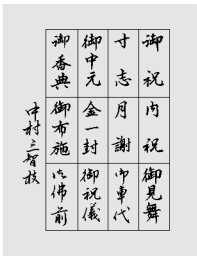 御祝
内祝
御見舞
寸志
月謝
御車代
御中元
金一封
御祝儀
御香典
御布施
御佛前
中村三智枝